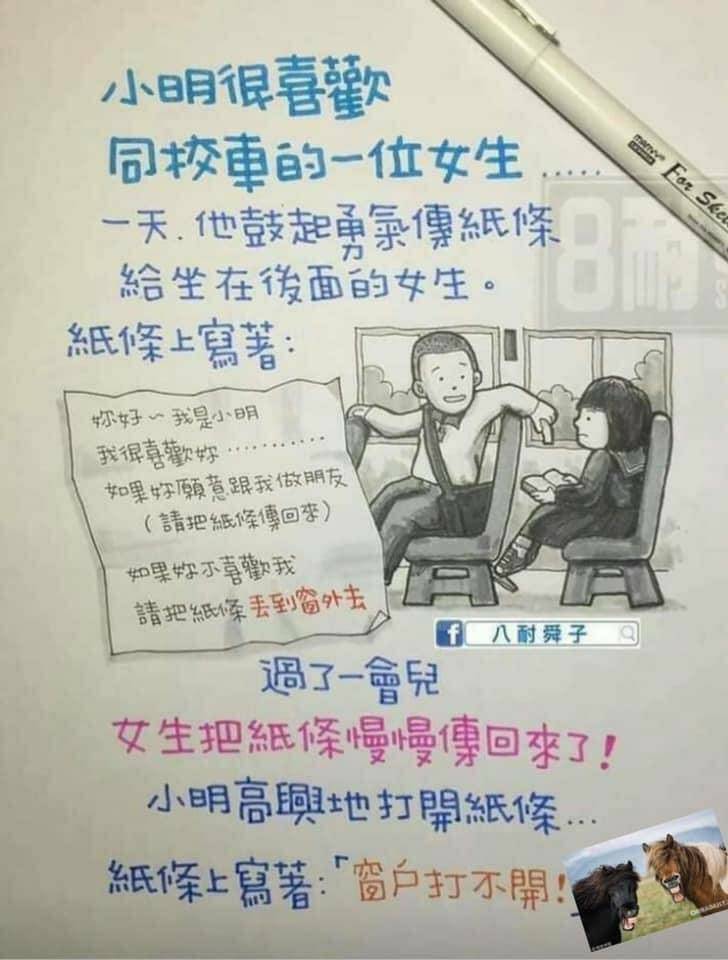 小明很喜歡
同校車的一位女生.....
一天.他鼓起勇氣傳紙條
給坐在後面的女生。
紙條上寫著:
妳好~我是小明
我很喜歡妳...........
如果妳願意跟我做朋友
(請把紙條傳回來)
如果妳不喜歡我
請把紙條丟到窗外去
八耐舜子
過了一會兒
女生把紙條慢慢傳回來了!
小明高興地打開紙條...
紙條上寫著:「窗户打不開!」
For Ske
8耐